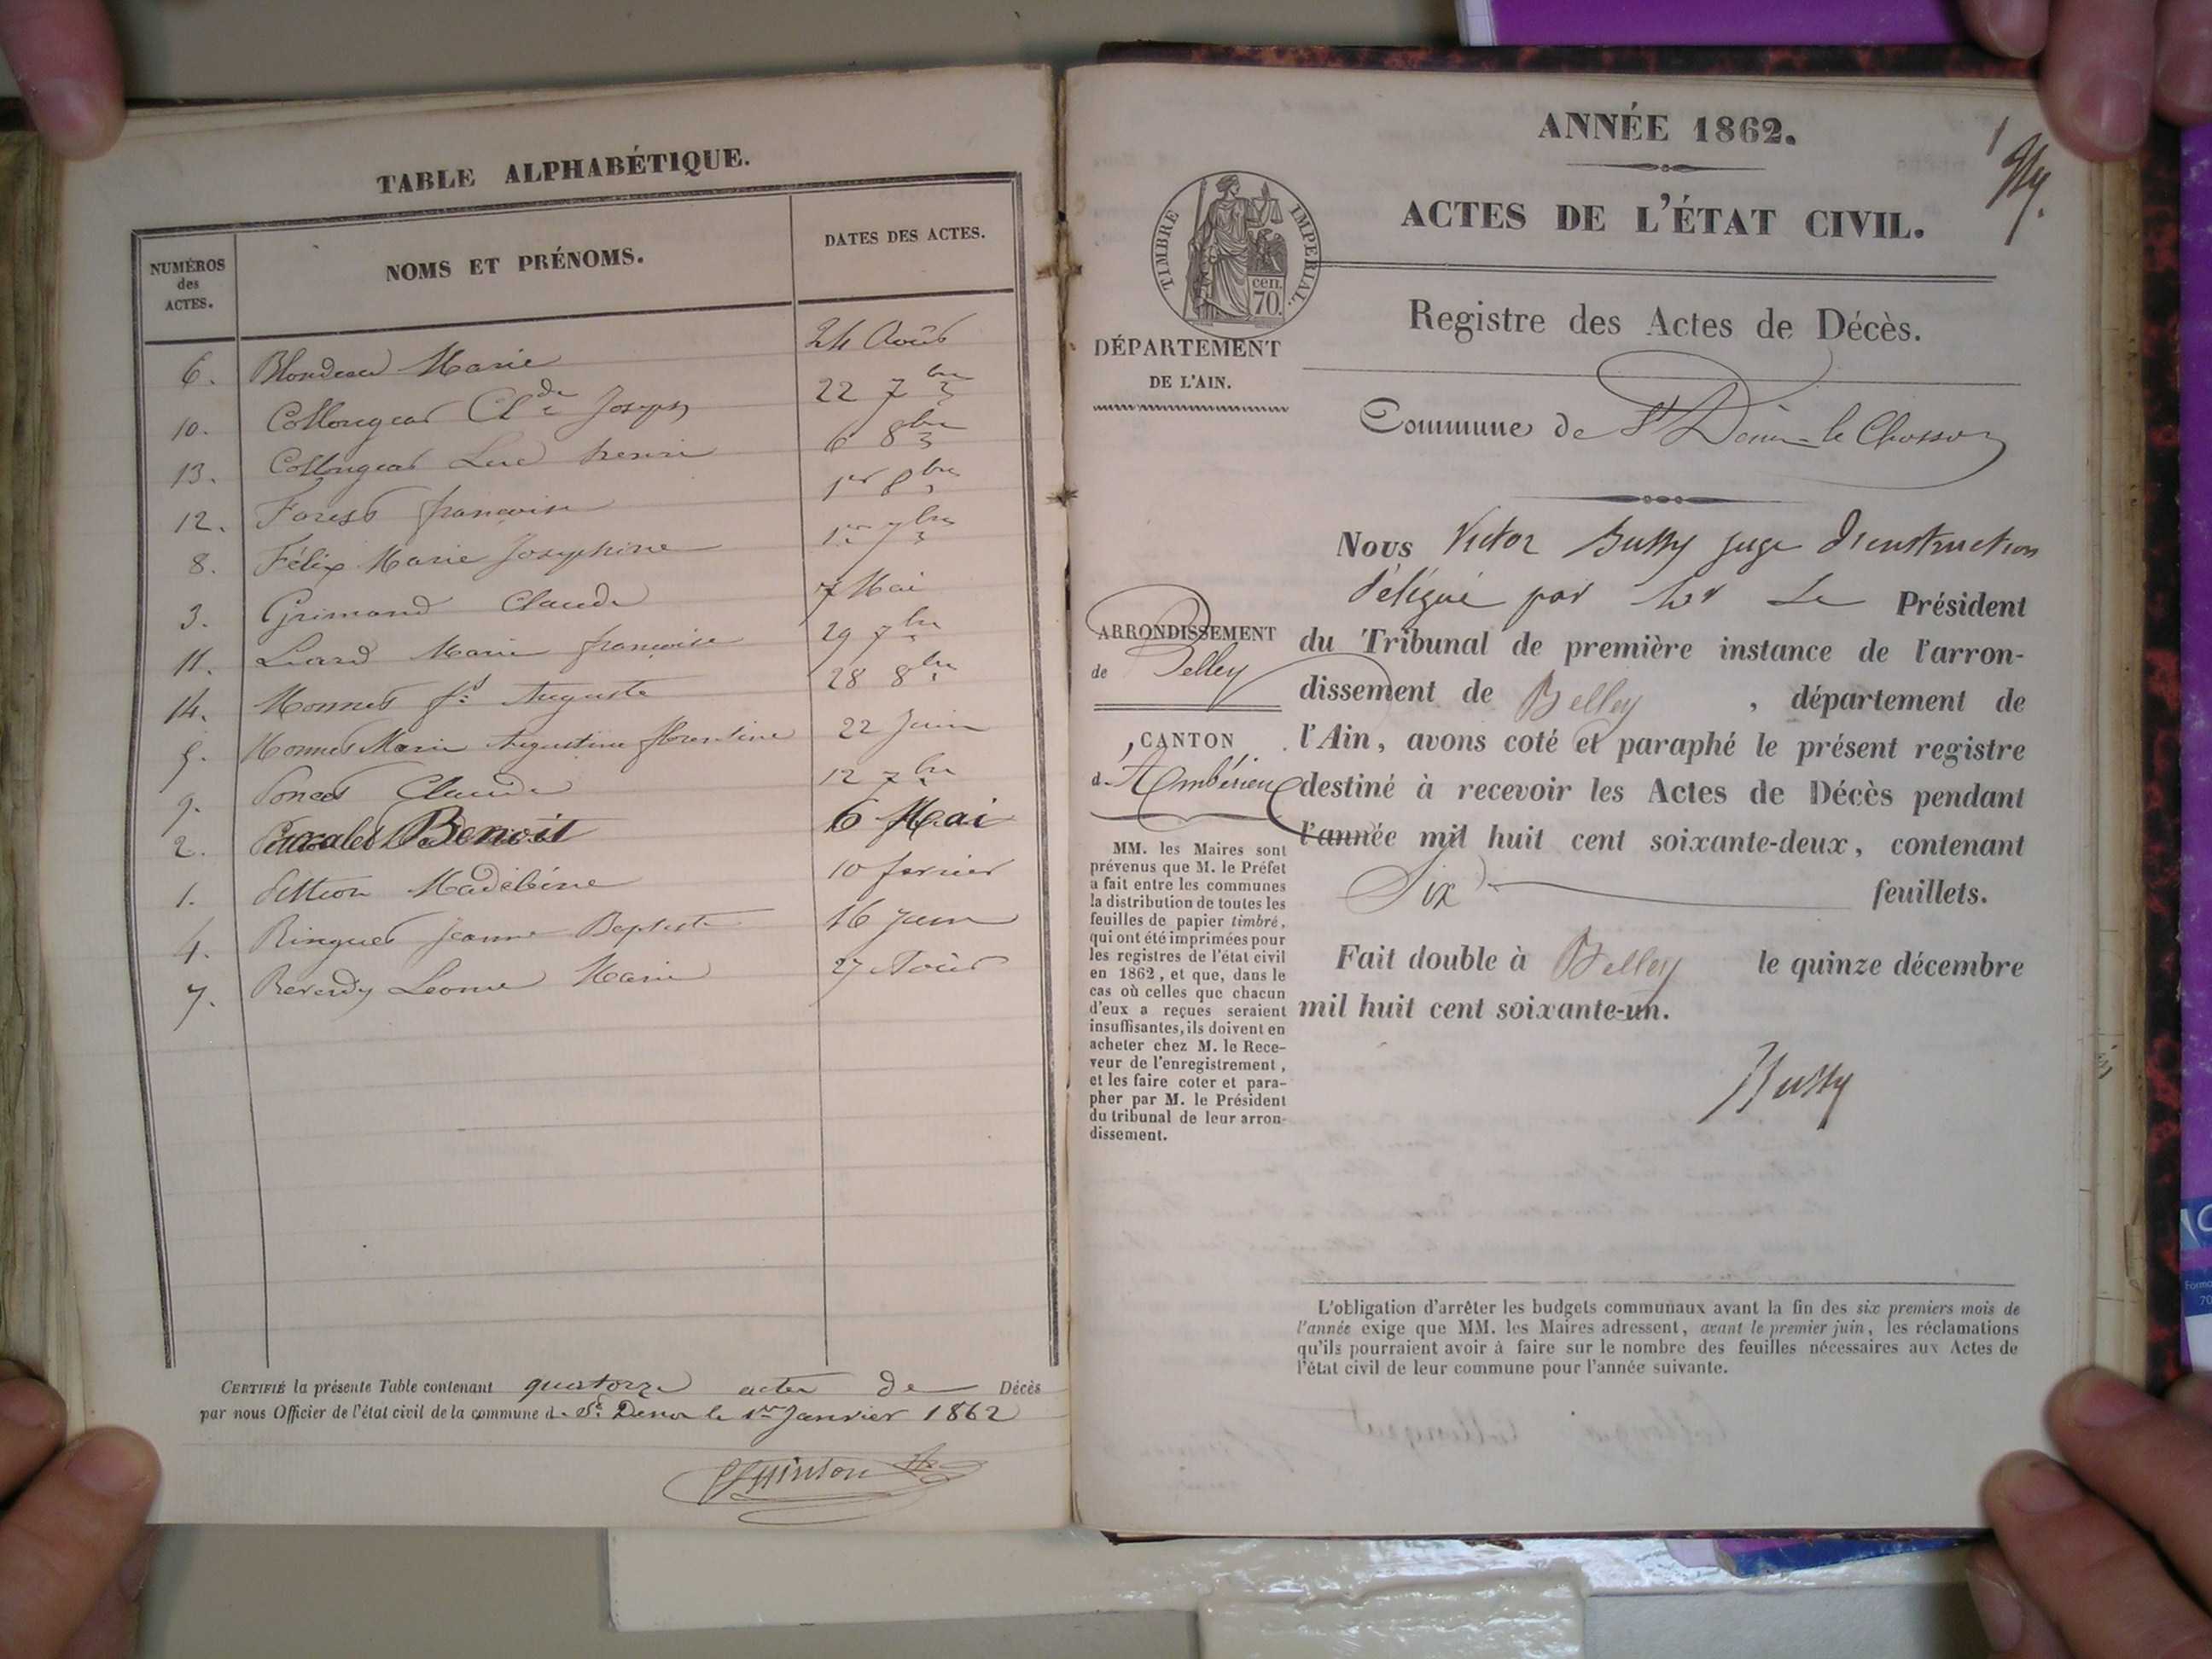 TABLE ALPHABÉTIQUE.
NUMÉROS
des
ACTES.
NOMS ET PRÉNOMS.
DATES DES ACTES.
6. Blondeau Marie 24 Août
10. Collongeat Cl.de Joseph 22 7bre
13. Collongeat Luc henri 6 8bre
12. Forest françoise 1er 8bre
8. Félix Marie Josephine 1er 7bre
3. Grimand Claude 7 Mai
11. Liard Marie françoise 29 7bre
14. Monnet fs Auguste 28 8bre
5. Monnet Marie Augustine florentine 22 Juin
9. Poncet Claude 12 7bre
2. Benoit 6 Mai
1. Madeleine 10 fevrier
4. Ringuet Jeanne Baptiste 16 juin
7. Reverdy Leonie Marie 27 Août
CERTIFIÉ la présente Table contenant quatorze actes de Décès
par nous Officier de l'état civil de la commune d. St. Denis le 1er Janvier 1862
ANNÉE 1862.
1
ACTES DE L'ÉTAT CIVIL.
TIMBRE IMPERIAL.
cen.
70.
Registre des Actes de Décès.
DÉPARTEMENT
DE L'AIN.
Commune de St Denis-le Chosson
Nous Victor Bussy juge d'instruction
délégué par Mr Le Président
ARRONDISSEMENT
de Belley
du Tribunal de première instance de l'arron-
dissement de Belley, département de
l'Ain, avons coté et paraphé le présent registre
destiné à recevoir les Actes de Décès pendant
l'année mil huit cent soixante-deux, contenant
Six feuillets.
CANTON
d'Ambérieu
MM. les Maires sont
prévenus que M. le Préfet
a fait entre les communes
la distribution de toutes les
feuilles de papier timbré,
qui ont été imprimées pour
les registres de l'état civil
en 1862, et que, dans le
cas où celles que chacun
d'eux a reçues seraient
insuffisantes, ils doivent en
acheter chez M. le Rece-
veur de l'enregistrement,
et les faire coter et para-
pher par M. le Président
du tribunal de leur arron-
dissement.
Fait double à Belley le quinze décembre
mil huit cent soixante-un.
Bussy
L'obligation d'arrêter les budgets communaux avant la fin des six premiers mois de
l'année exige que MM. les Maires adressent, avant le premier juin, les réclamations
qu'ils pourraient avoir à faire sur le nombre des feuilles nécessaires aux Actes de
l'état civil de leur commune pour l'année suivante.